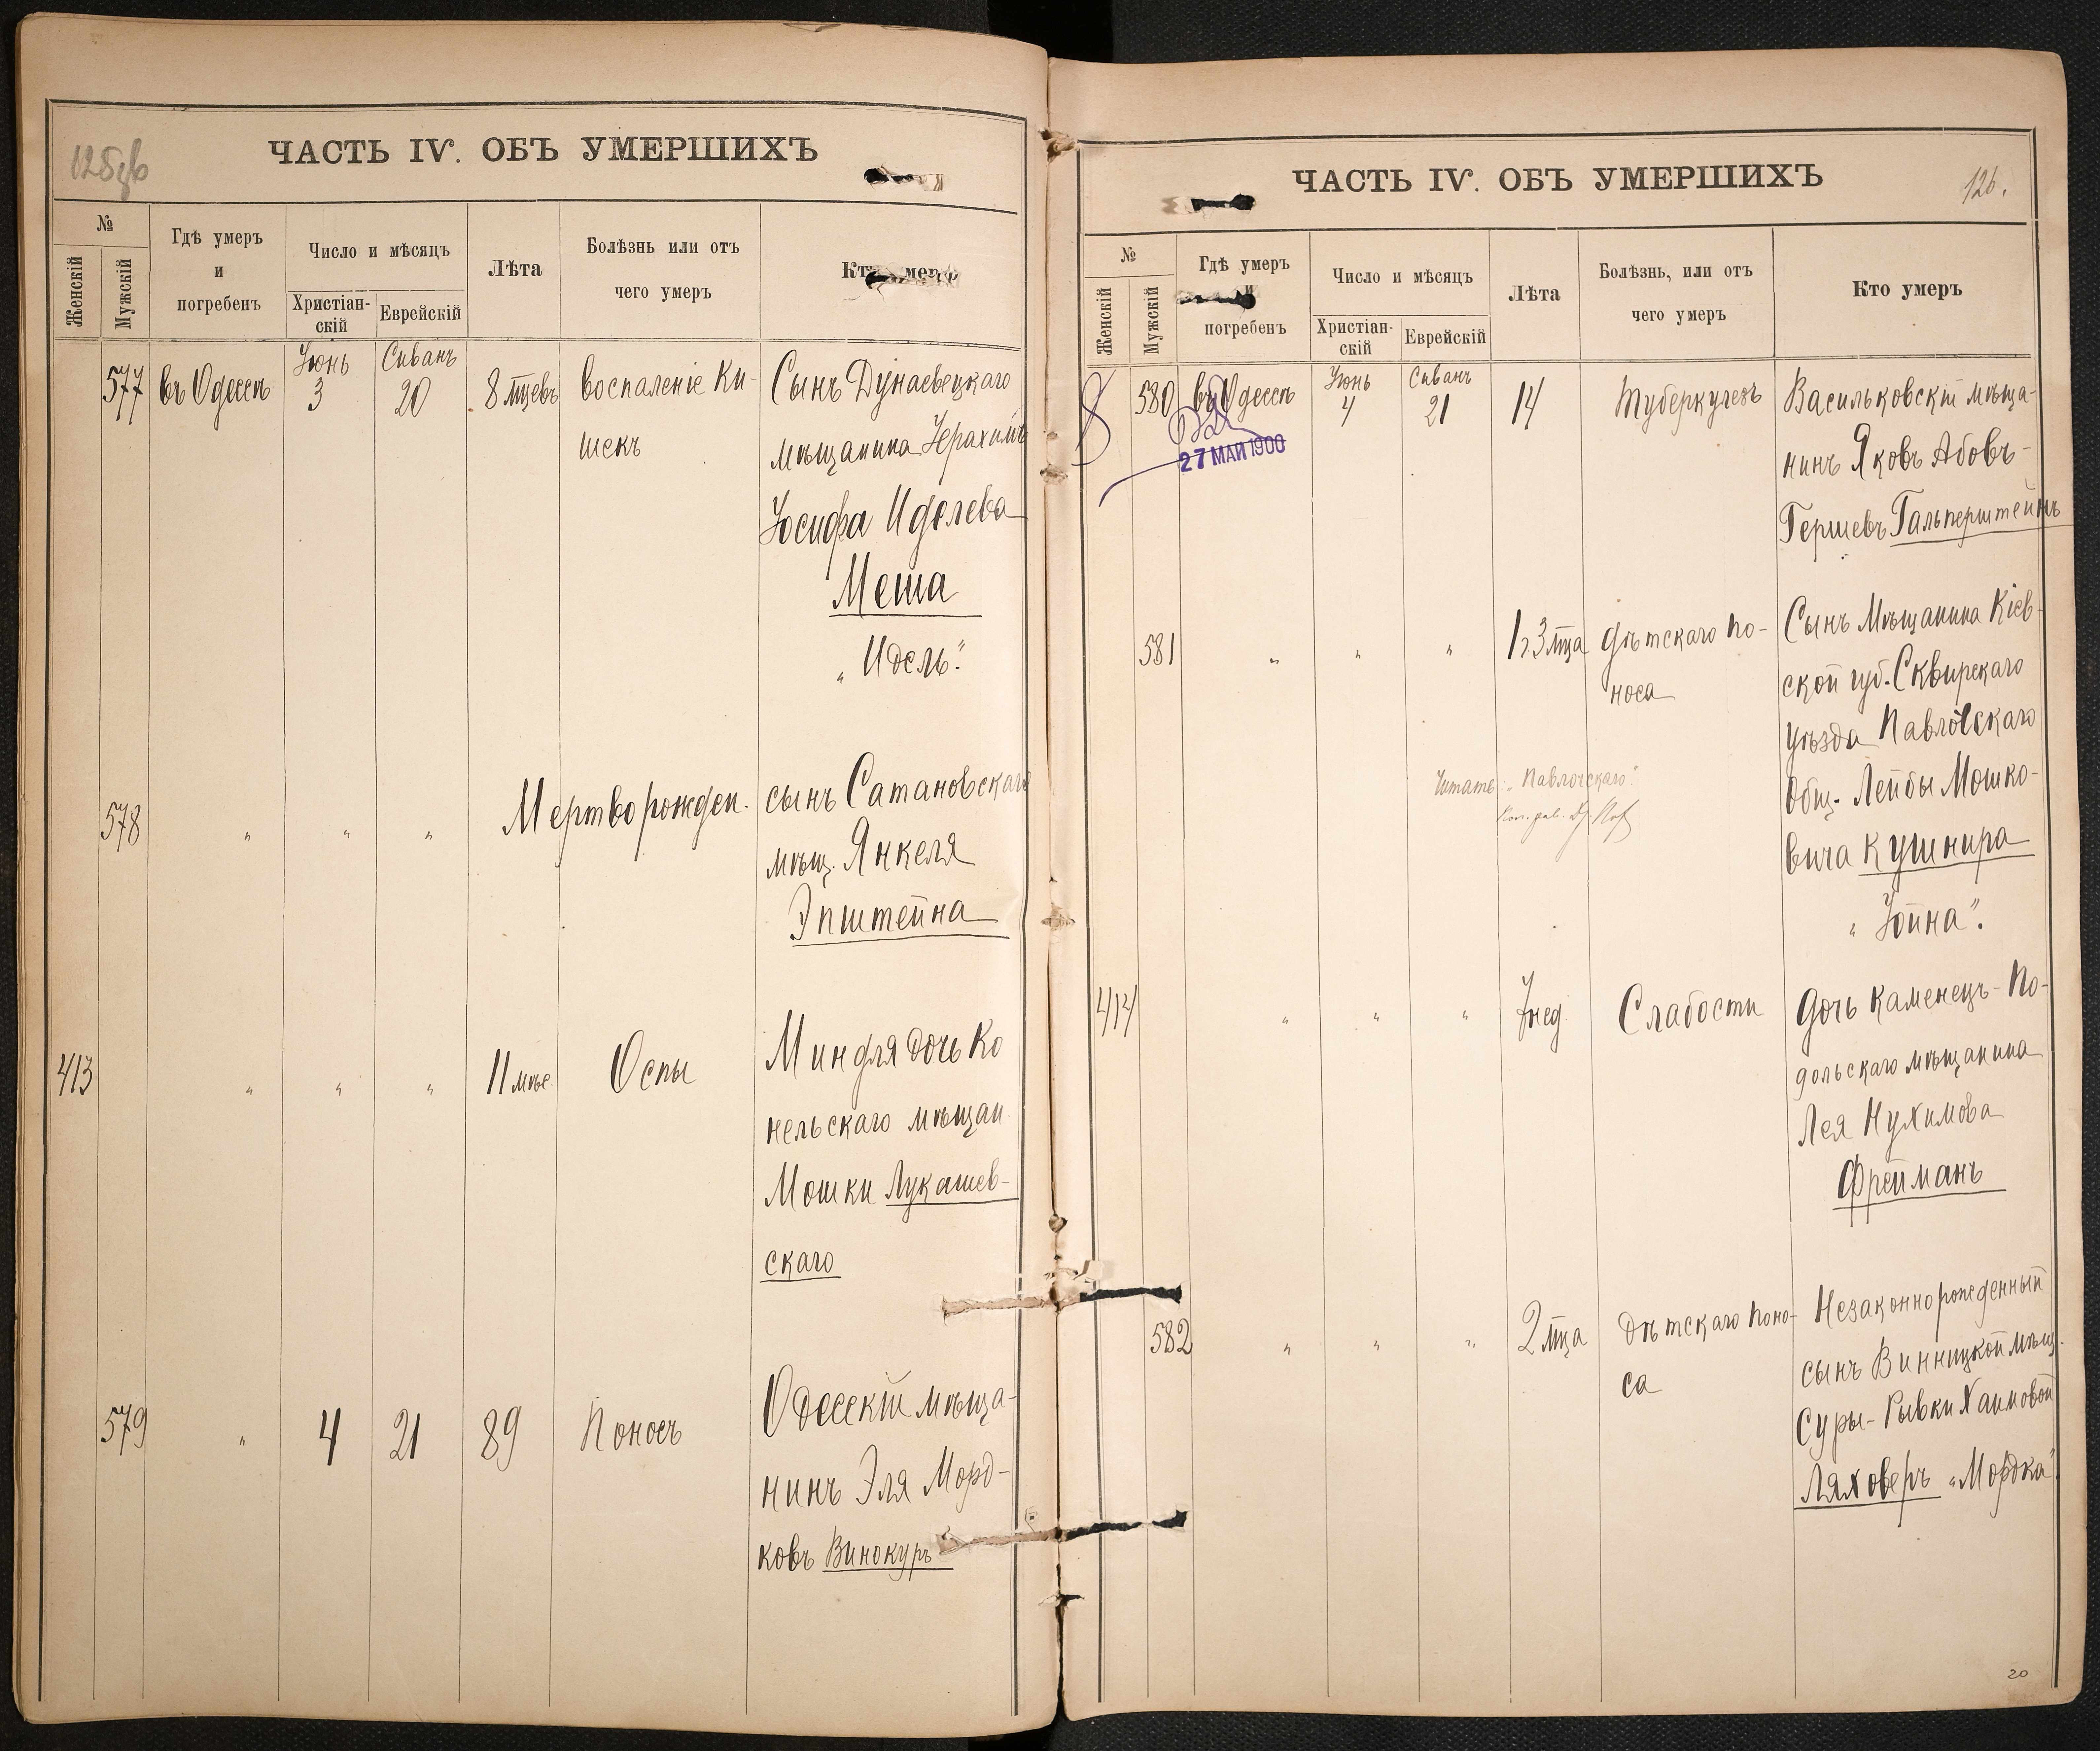 ЧАСТЬ IV. ОБЪ УМЕРШИХЪ
№
Женскій
Мужскій
Гдѣ умеръ
и
погребенъ
Число и мѣсяцъ
Христіан-
скій
Еврейскій
Лѣта
Болѣзнь или отъ
чего умеръ
577 въ Одессѣ Іюнь 3 Сиванъ 20 8 мцевъ воспаленіе ки-
шекъ
Сынъ Дунаевецкаго
мѣщанина
Іосифа Иделева
Меша
„Идель".
578 „ „ „ Мертворожден.
сынъ Сатановскаго
мѣщ. Янкеля
Эпштейна
413 „ „ „ 11 мѣс. Оспы
Миндля дочь Ко
нельскаго мѣщан.
Мошки Лукашев-
скаго
579 „ 4 21 89 Поносъ
Одесскій мѣща-
нинъ Эля Морд-
ковъ Винокуръ
ЧАСТЬ IV. ОБЪ УМЕРШИХЪ
126.
№
Женскій
Мужскій
Гдѣ умеръ
и
погребенъ
Число и мѣсяцъ
Христіан-
скій
Еврейскій
Лѣта
Болѣзнь, или отъ
чего умеръ
Кто умеръ
580 въ Одессѣ Іюнь 4 Сиванъ 21 14 Туберкулезъ
27 МАЙ 1900
Васильковскій мѣща-
нинъ Яковъ Абовъ-
Гершевъ Гальперштейнъ
581 „ „ „ 1 г. 3 мца дѣтскаго по-
носа
Сынъ Мѣщанина Кіев-
ской губ. Сквирскаго
уѣзда Павлоскаго
Общ. Лейбы Мошко-
вича Кушнира
„Іойна".
Читать: „Павлочскаго".
414 „ „ „ 7 нед. Слабости
Дочь Каменецъ-По-
дольскаго мѣщанина
Лея Нухимова
Фрейманъ
582 „ „ „ 2 мца Дѣтскаго поно-
са
Незаконнорожденный
сынъ Винницкой мѣщ.
Суры-Рывки Хаимовой
Ляховеръ „Мордка".
20